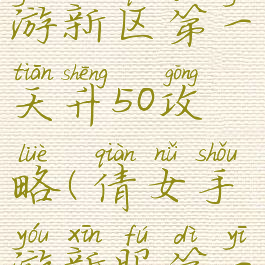 游新区第一
tiān shēng gōng
天升50攻
lüè qiàn nǚ shǒu
略(倩女手
yóu xīn fú dì yī
游新服第一